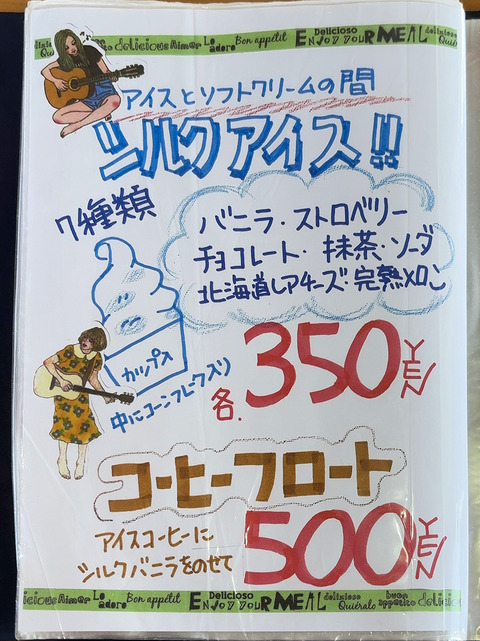 delicious Aimer Lo adoro Bon appétit Delicioso ENJOY YOUR MEAL delizioso Quiérolo
アイスとソフトクリームの間
シルクアイス!!
7種類
バニラ・ストロベリー
チョコレート・抹茶・ソーダ
北海道レアチーズ・完熟メロン
カップ入
中にコーンフレーク入り
各.350YEN
コーヒーフロート
アイスコーヒーに
シルクバニラをのせて
500YEN
Aimer Lo adoro Bon appétit Delicioso ENJOY YOUR MEAL delizioso Quiérolo